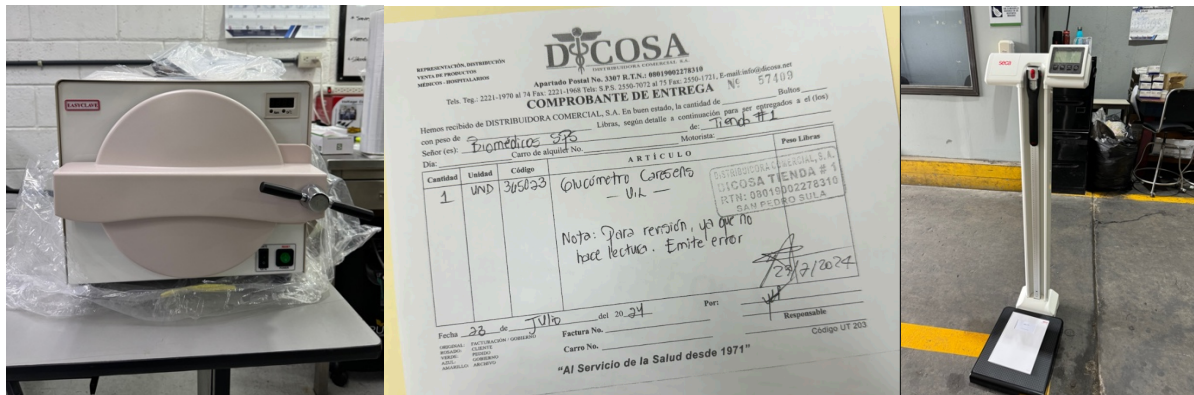 EASYCLAVE
REPRESENTACIÓN, DISTRIBUCIÓN
VENTA DE PRODUCTOS
MÉDICOS - HOSPITALARIOS
DICOSA
DISTRIBUIDORA COMERCIAL, S.A.
Apartado Postal No. 3307 R.T.N.: 08019002278310
Tels. Teg.: 2221-1970 al 74 Fax: 2221-1968 Tels: S.P.S. 2550-7072 al 75 Fax: 2550-1721, E-mail:info@dicosa.net
COMPROBANTE DE ENTREGA
Nº 57409
Hemos recibido de DISTRIBUIDORA COMERCIAL, S.A. En buen estado, la cantidad de Bultos
con peso de Libras, según detalle a continuación para ser entregados a el (los)
Señor (es): Biomédicos SPS de: Tienda #1
Día: Carro de alquiler No. Motorista:
Cantidad Unidad Código ARTÍCULO Peso Libras
1 UND 345023 Glucómetro Caresens
DISTRIBUIDORA COMERCIAL, S.A.
DICOSA TIENDA # 1
RTN: 08019002278310
SAN PEDRO SULA
Nota: Para revisión, ya que no
hace lectura. Emite error
23/7/2024
Fecha 23 de Julio del 2024 Por:
Responsable
ORIGINAL: FACTURACIÓN / GOBIERNO
ROSADO: CLIENTE
VERDE: PEDIDO
AZUL: GOBIERNO
AMARILLO: ARCHIVO
Factura No.
Carro No.
Código UT 203
"Al Servicio de la Salud desde 1971"
seca